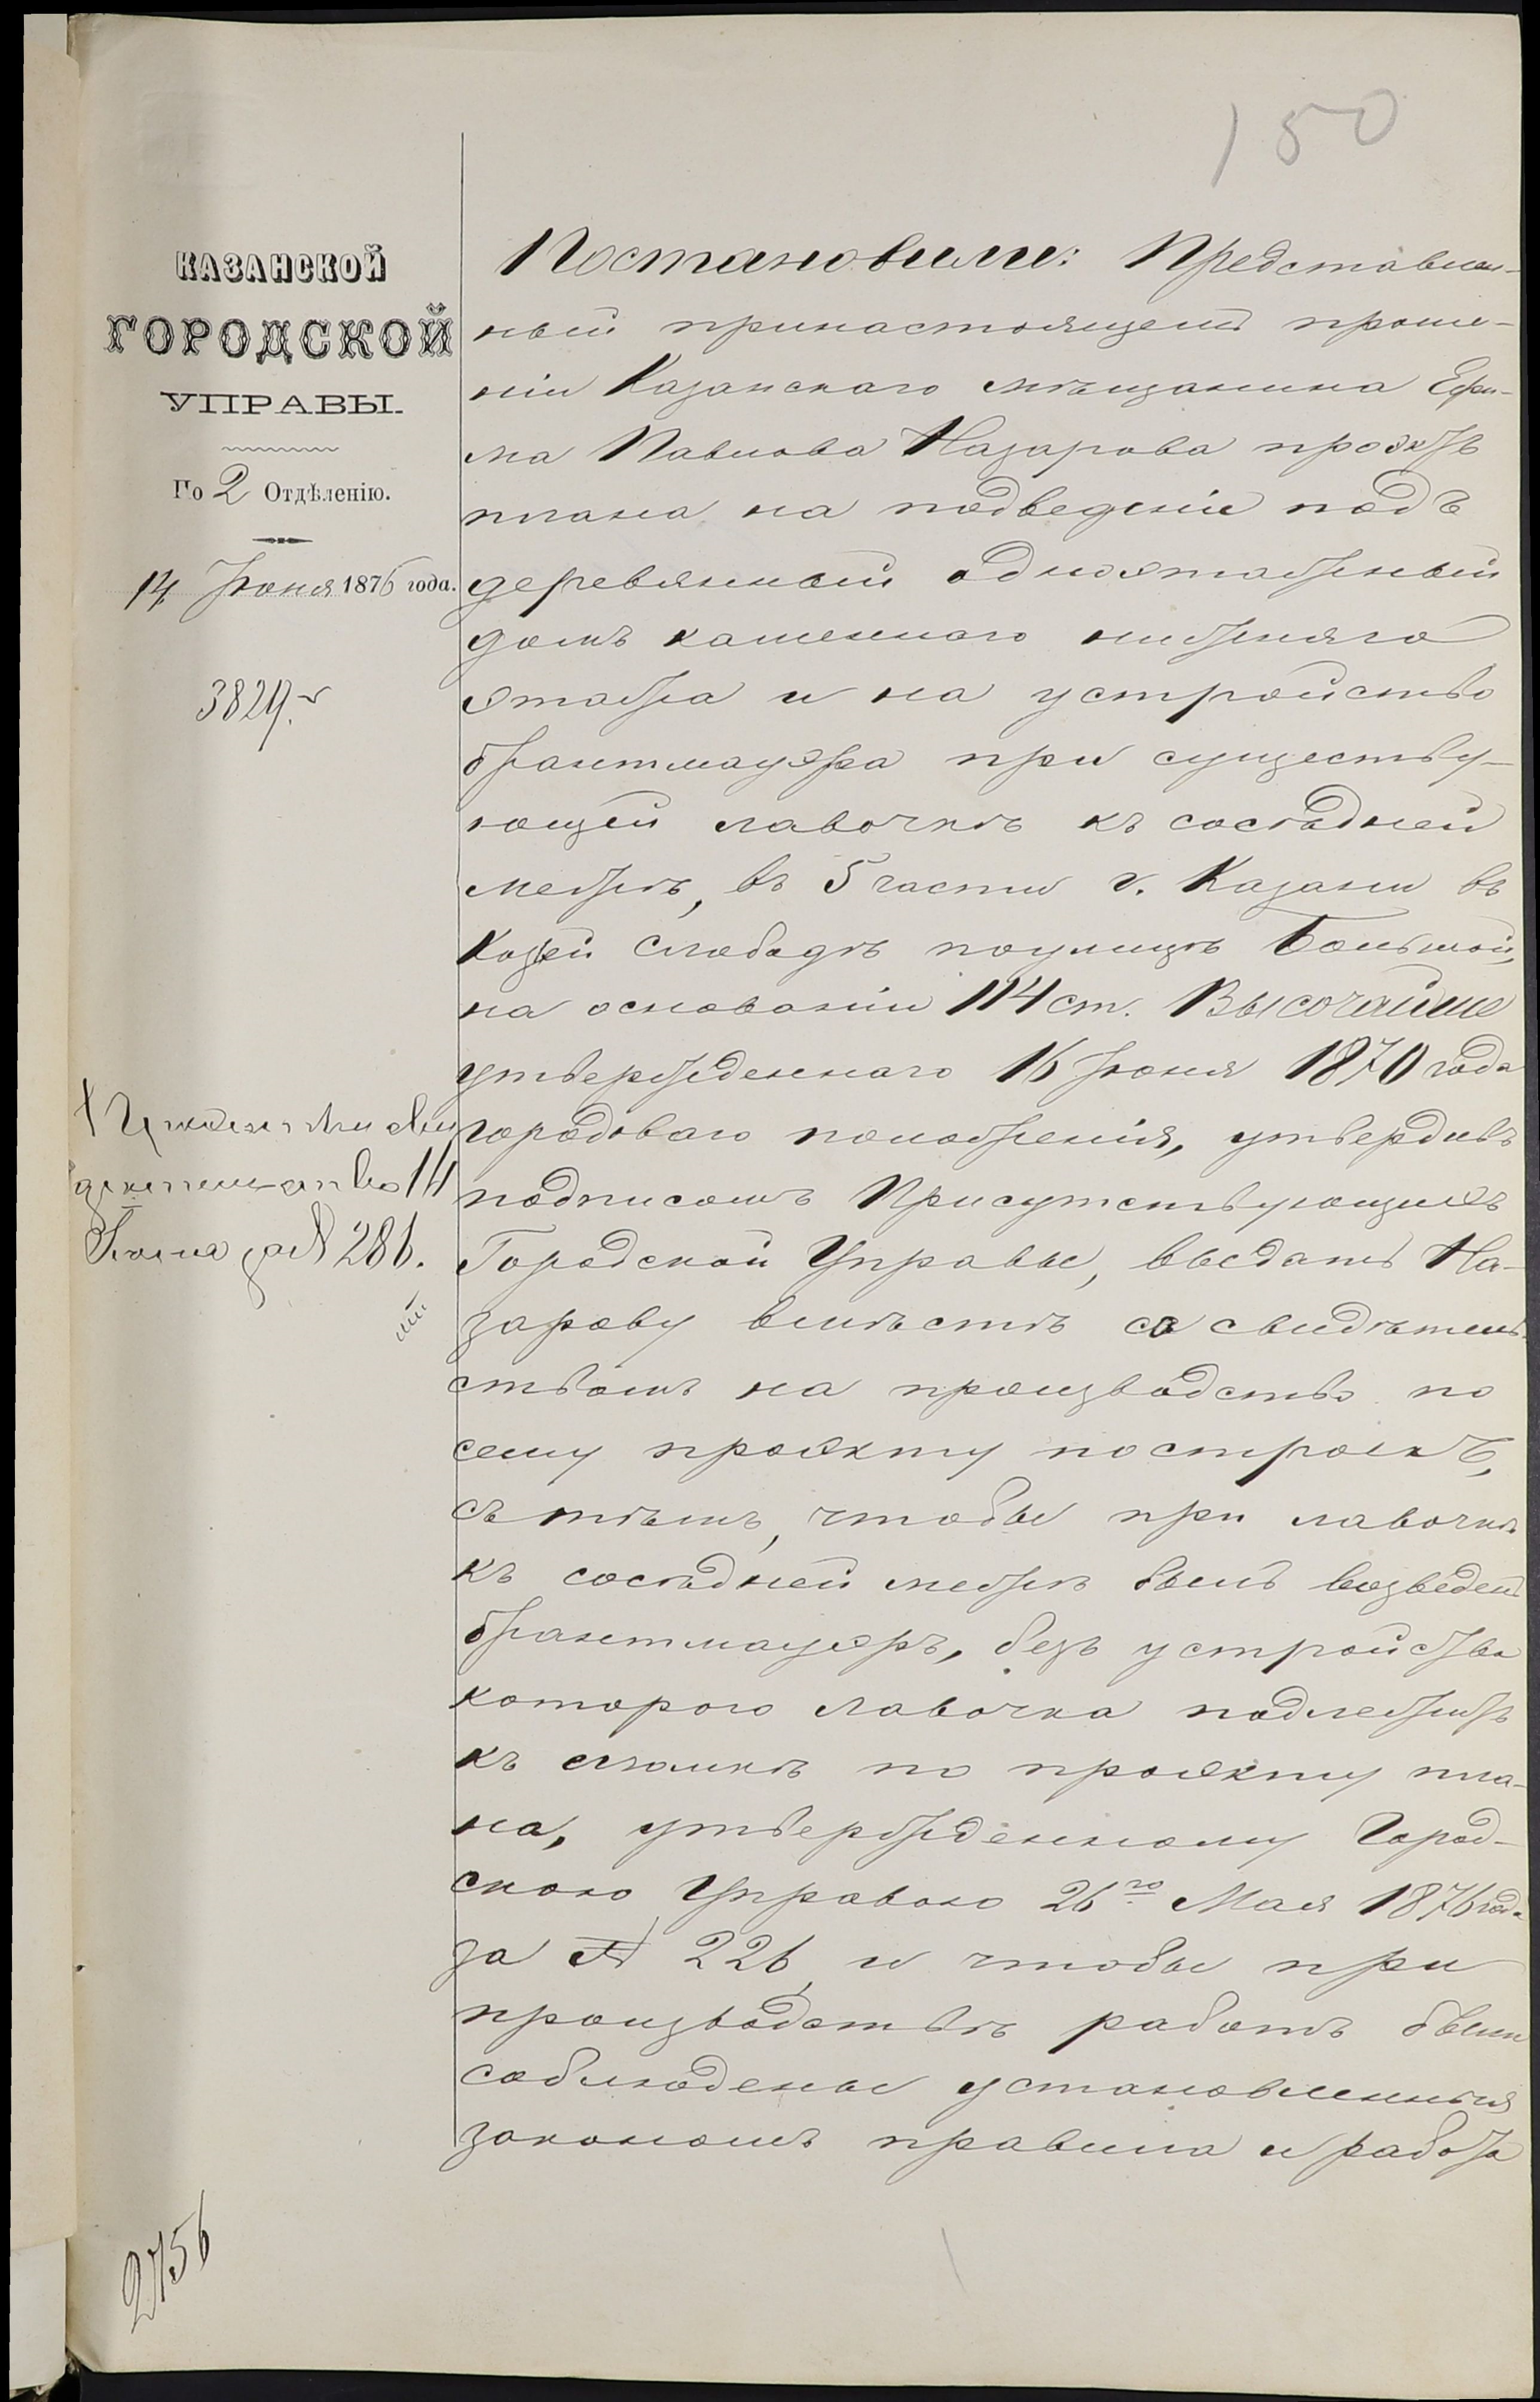 150
КАЗАНСКОЙ
ГОРОДСКОЙ
УПРАВЫ.
По 2 Отдѣленію.
14 Іюня 1876 года.
3829.
14
286.
Постановили: Представлен-
ный принастоящемъ проше-
ніи Казанскаго мѣщанина Ефи-
ма Павлова Назарова проэктъ
плана на подведеніе подъ
деревянный одноэтажный
домъ каменнаго нижняго
этажа и на устройство
брантмауэра при существу-
ющей лавочкѣ къ сосѣдней
межѣ, въ 5 части г. Казани въ
Козьей слободѣ поулицѣ Большой,
на основаніи 114 ст. Высочайше
утвержденнаго 16 Іюня 1870 года
городоваго положенія, утвердивъ
подписомъ Присутствующихъ
Городской Управы, выдать На-
зарову вмѣстѣ со свидѣтель-
ствомъ на производство по
сему проэкту построекъ,
съ тѣмъ, чтобы при лавочкѣ
къ сосѣдней межѣ былъ возведенъ
брантмауэръ, безъ устройства
котораго лавочка подлежитъ
къ сломкѣ по проэкту пла-
на, утвержденному Город-
скою Управою 26го Мая 1876 года
за № 226, и чтобы при
производствѣ работъ были
соблюдены установленныя
закономъ правила и работа
2756